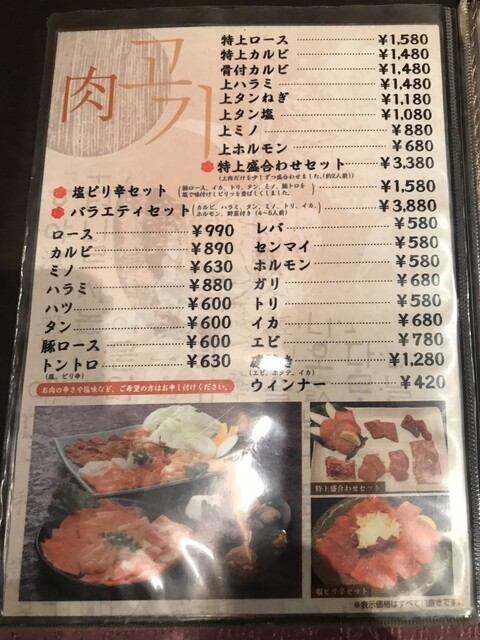 肉
고기
特上ロース ¥1,580
特上カルビ ¥1,480
骨付カルビ ¥1,480
上ハラミ ¥1,480
上タンねぎ ¥1,180
上タン塩 ¥1,080
上ミノ ¥880
上ホルモン ¥680
特上盛合わせセット ¥3,380
(上肉だけを少しずつ盛合わせました。(約2人前))
塩ピリ辛セット (豚ロース、イカ、トリ、タン、ミノ、豚トロを ¥1,580
塩で味付けしピリッと香ばしくしました。)
バラエティセット (カルビ、ハラミ、タン、ミノ、トリ、イカ、 ¥3,880
ホルモン、野菜付き(4～5人前))
ロース ¥990
カルビ ¥890
ミノ ¥630
ハラミ ¥880
ハツ ¥600
タン ¥600
豚ロース ¥600
トントロ ¥630
(塩、ピリ辛)
レバ ¥580
センマイ ¥580
ホルモン ¥580
ガリ ¥680
トリ ¥580
イカ ¥680
エビ ¥780
き ¥1,280
(エビ、ホタテ、イカ)
ウィンナー ¥420
お肉の辛さや塩味など、ご希望の方はお申し付けください。
特上盛合わせセット
塩ピリ辛セット
※表示価格はすべて税抜きです。